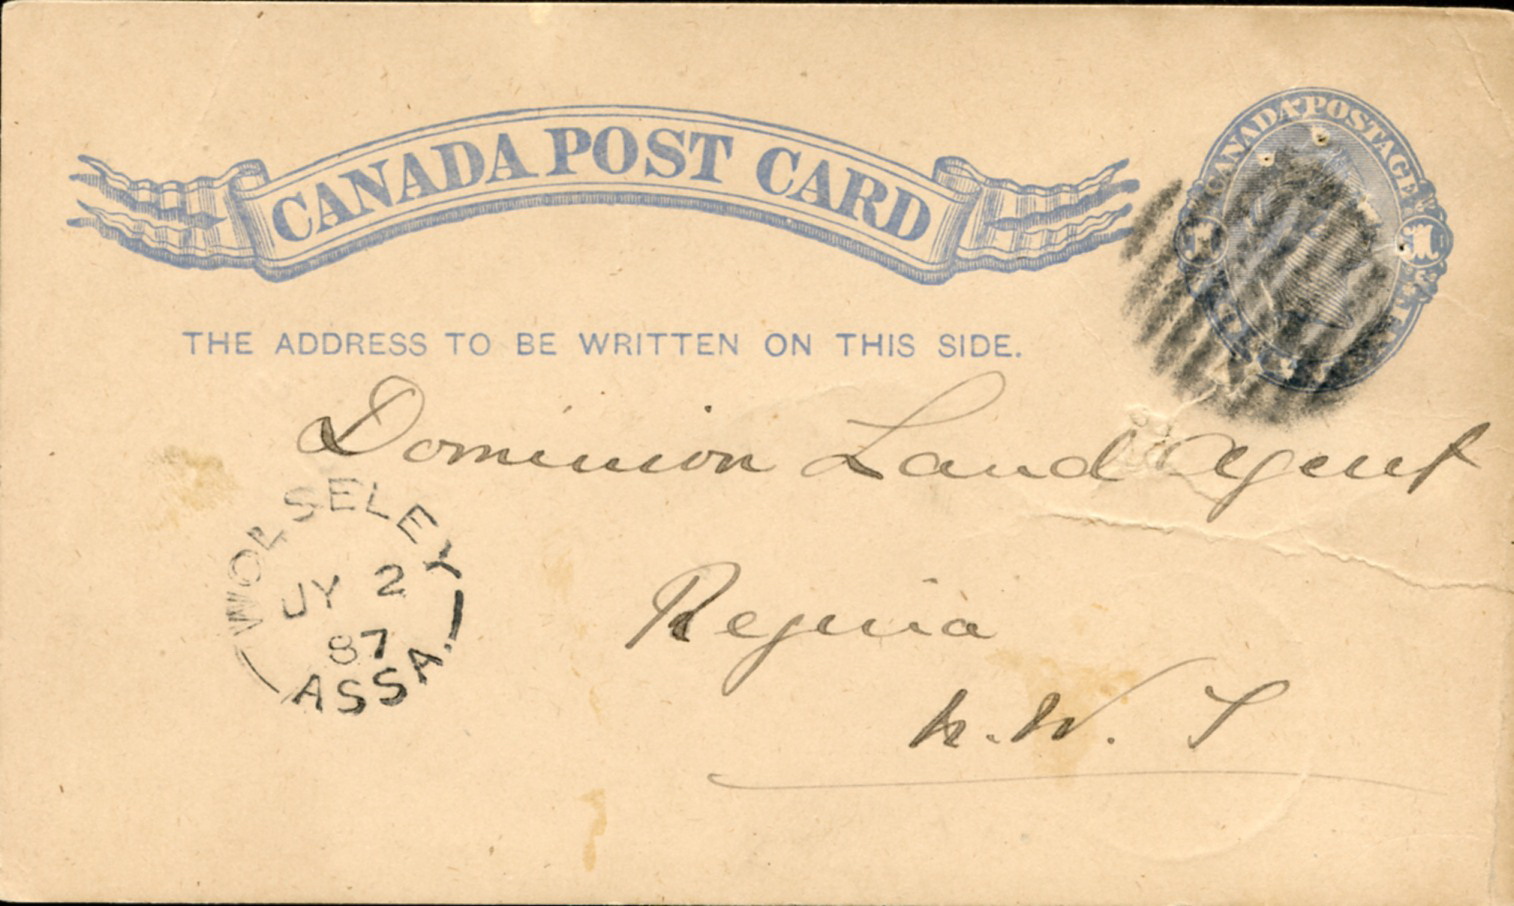 CANADA POST CARD
CANADA POSTAGE
THE ADDRESS TO BE WRITTEN ON THIS SIDE.
Dominion Land Agent
Regina
N.W.T
WOLSELEY
JY 2
87
ASSA.